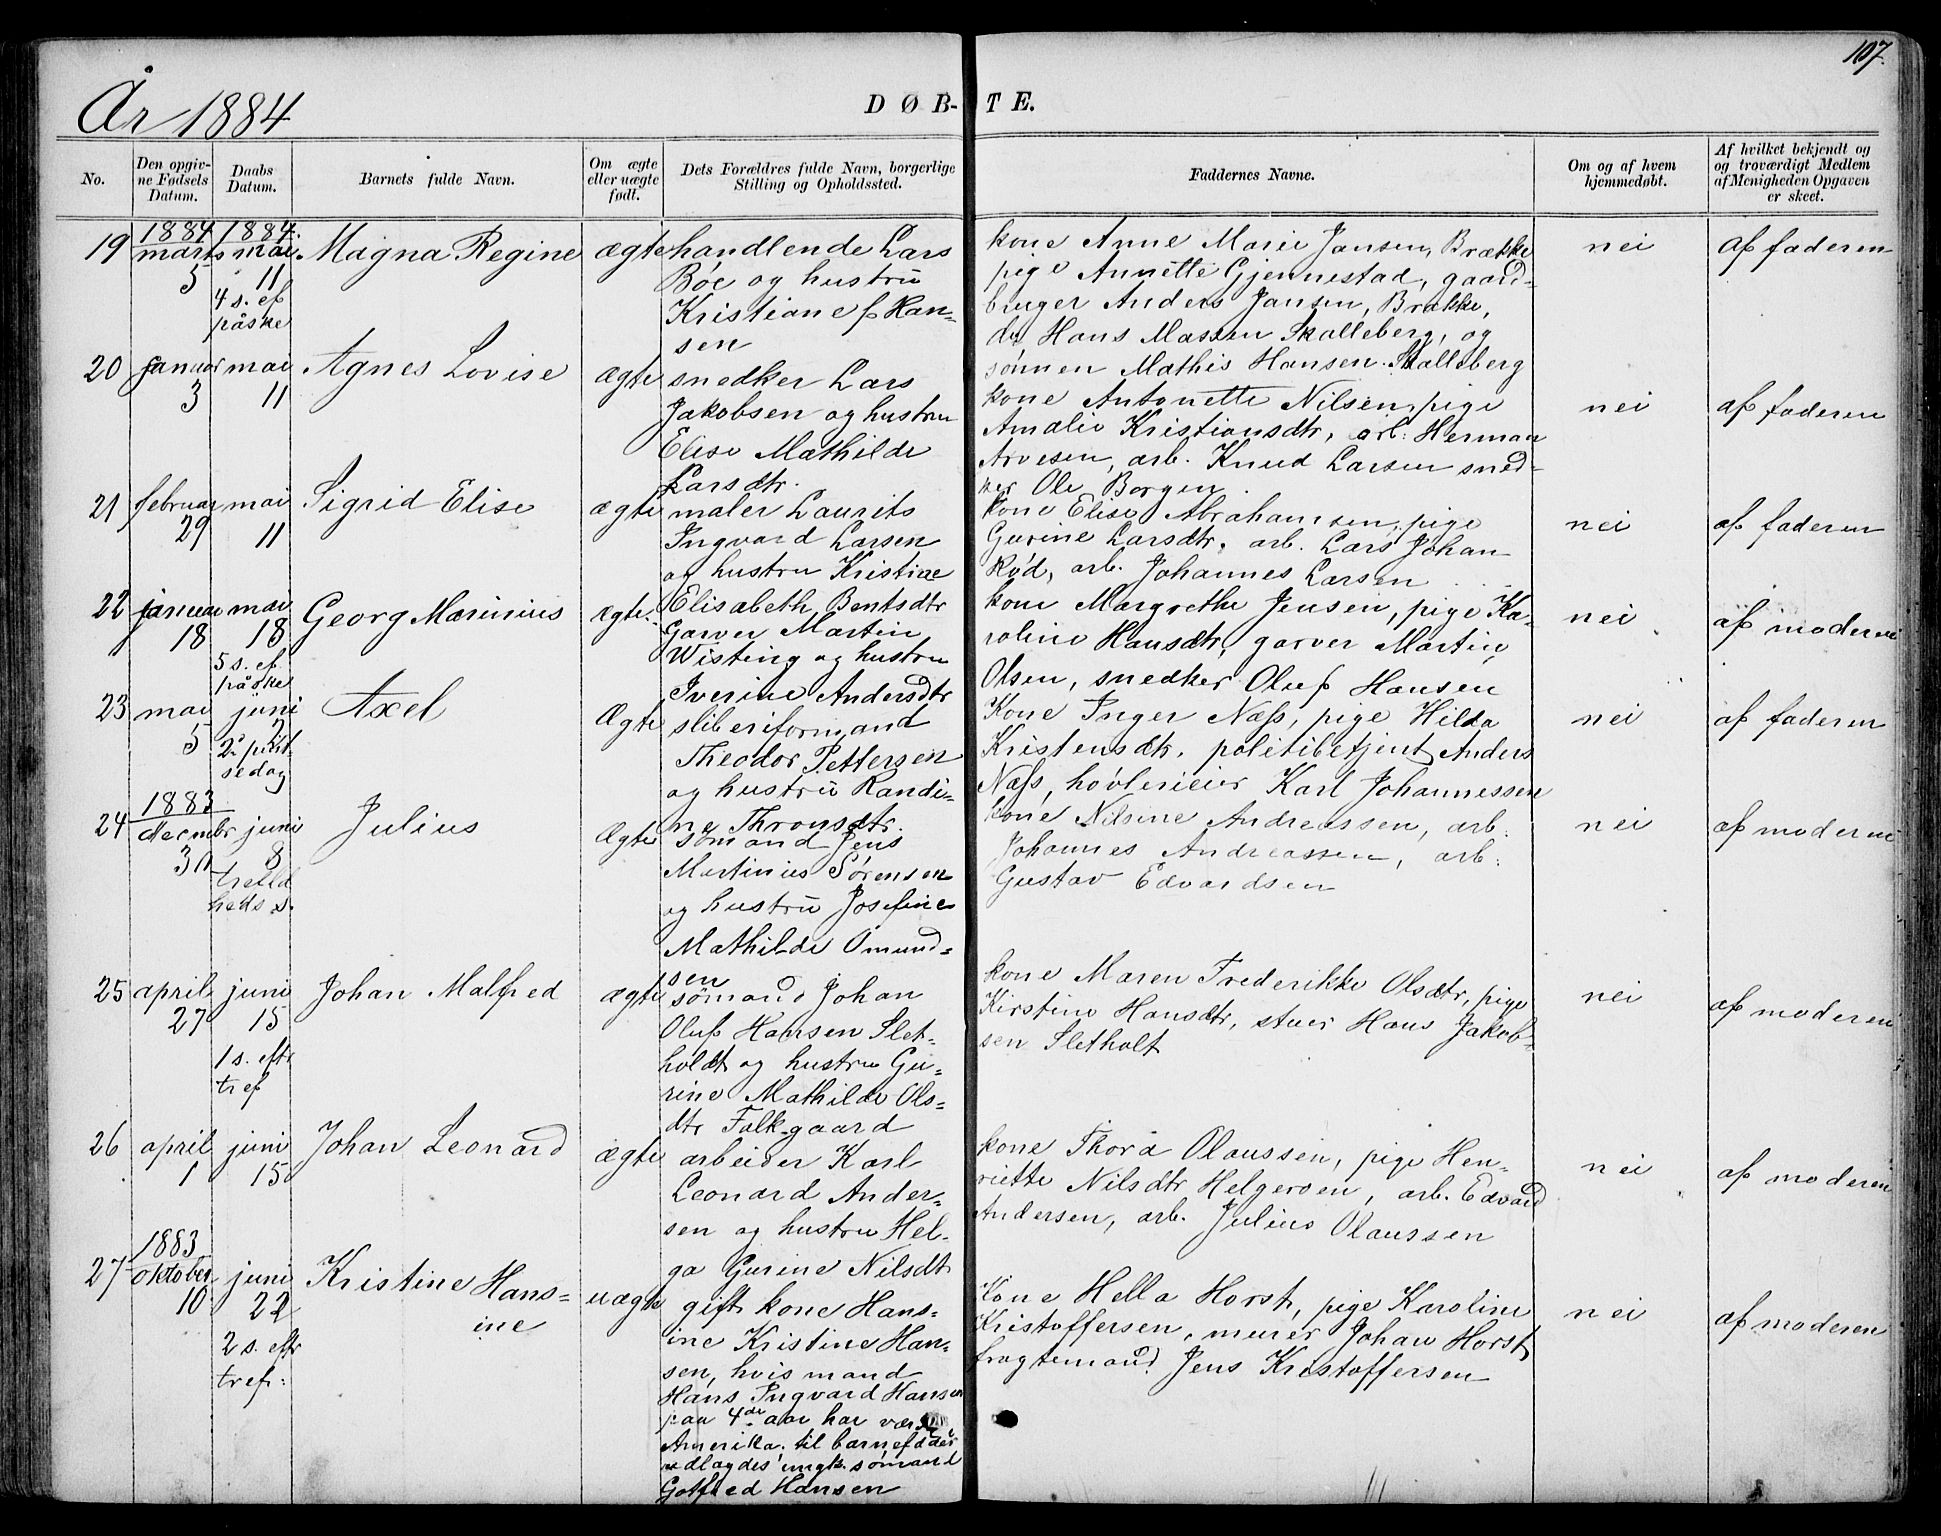 107.
År 1884
DØB-TE.
No.
Den opgiv-
ne Fødsels
Datum.
Daabs
Datum.
Barnets fulde Navn.
Om ægte
eller uægte
født.
Dets Forældres fulde Navn, borgerlige
Stilling og Opholdssted.
Faddernes Navne.
Om og af hvem
hjemmedøbt.
Af hvilket bekjendt og
og troværdigt Medlem
af Menigheden Opgaven
er skeet.
19
1884
marts
5
1884.
mai
11
4 s. ef
påske
Magna Regine
ægte
handlende Lars
Böe og hustru
Kristiane f Han-
sen
kone Anne Marie Jansen, Brække
pige Annette Gjennestad, gaard-
bruger Anders Jansen, Brække,
do Hans Massen Skalleberg, og
sönnen Mathis Hansen Skalleberg
nei
af faderen
20
januar
3
mai
11
Agnes Lovise
ægte
snedker Lars
Jakobsen og hustru
Elise Mathilde
Larsdtr.
kone Antonette Nilsen, pige
Amalie Kristiansdtr, arb. Herman
Arvesen, arb. Knud Larsen sned-
ker Ole Borgen
nei
af faderen
21
februar
29
mai
11
Sigrid Elise
ægte
maler Laurits
Ingvard Larsen
og hustru Kristiae
Elisabeth Bentsdtr
kone Elise Abrahamsen, pige
Gurine Larsdtr. arb. Lars Johan
Röd, arb. Johannes Larsen
nei
af faderen
22
januar
18
mai
18
5 s. ef.
påske
Georg Marinius
ægte
Garver Martin
Wisting og hustru
Iverine Andersdtr
kone Margrethe Jensen, pige Ka-
roline Hansdtr, garver Martin
Olsen, snedker Oluf Hansen
nei
af moderen
23
mai
5
juni
2
2. pint
sedag
Axel
Ægte
sliberiformand
Theodor Pettersen
og hustru Randi-
ne Thronsdtr.
Kone Inger Næss, pige Hilda
Kristensdtr. politibetjent Anders
Næss, hövlerieier Karl Johannessen
nei
af faderen
24
1883
decmbr
30
juni
8
trefld
heds s.
Julius
Ægte
sömand Jens
Martinius Sörensen
og hustru Josefine
Mathilde Omund-
sen
kone Nilsine Andreassen, arb.
Johannes Andreassen, arb.
Gustav Edvardsen
nei
af moderen
25
april
27
juni
15
1 s. eftr
tref
Johan Malfred
ægte
sömand Johan
Oluf Hansen Slet-
holdt og hustru Gu-
rine Mathilde Ols-
dtr Falkgaard
kone Maren Frederikke Olsdtr, pige
Kirstine Hansdtr, stuer Hans Jakob-
sen Sletholt
nei
af moderen
26
april
1
juni
15
Johan Leonard
ægte
arbeider Karl
Leonard Ander-
sen og hustru Hel-
ga Gurine Nilsdt
kone Thora Olaussen, pige Hen-
riette Nilsdtr Helgeroen, arb. Edvard
Andersen, arb. Julius Olaussen
nei
af moderen
27
1883
oktober
10
juni
22
2 s. eftr
tref:
Kristine Hans-
ine
uægte
gift kone Hans-
ine Kristine Han-
sen, hvis mand
Hans Ingvard Hansen
paa 4de aar har været
Amerika. til barnefader
udlagdes ungk. sömand
Gotfred Hansen
Kone Hella Horst, pige Karoline
Kristoffersen, murer Johan Horst
fragtemand Jens Kristoffersen
nei
af moderen